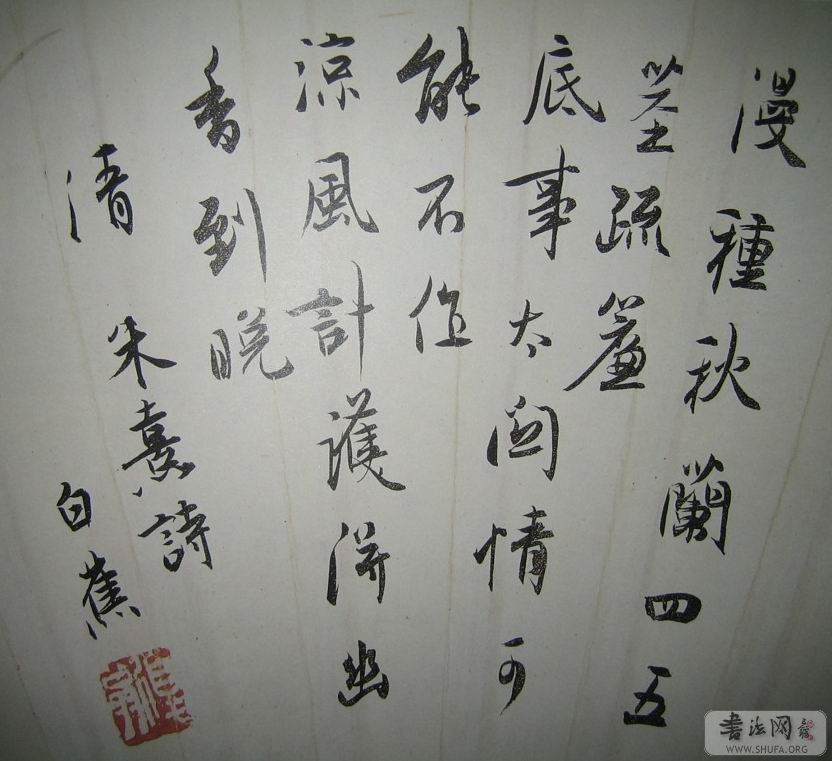 漫種秋蘭四五
茎疏簾
底事太関情可
能不作
涼風計護得幽
香到晚
清 朱熹詩
白蕉
書法网
WWW.SHUFA.ORG